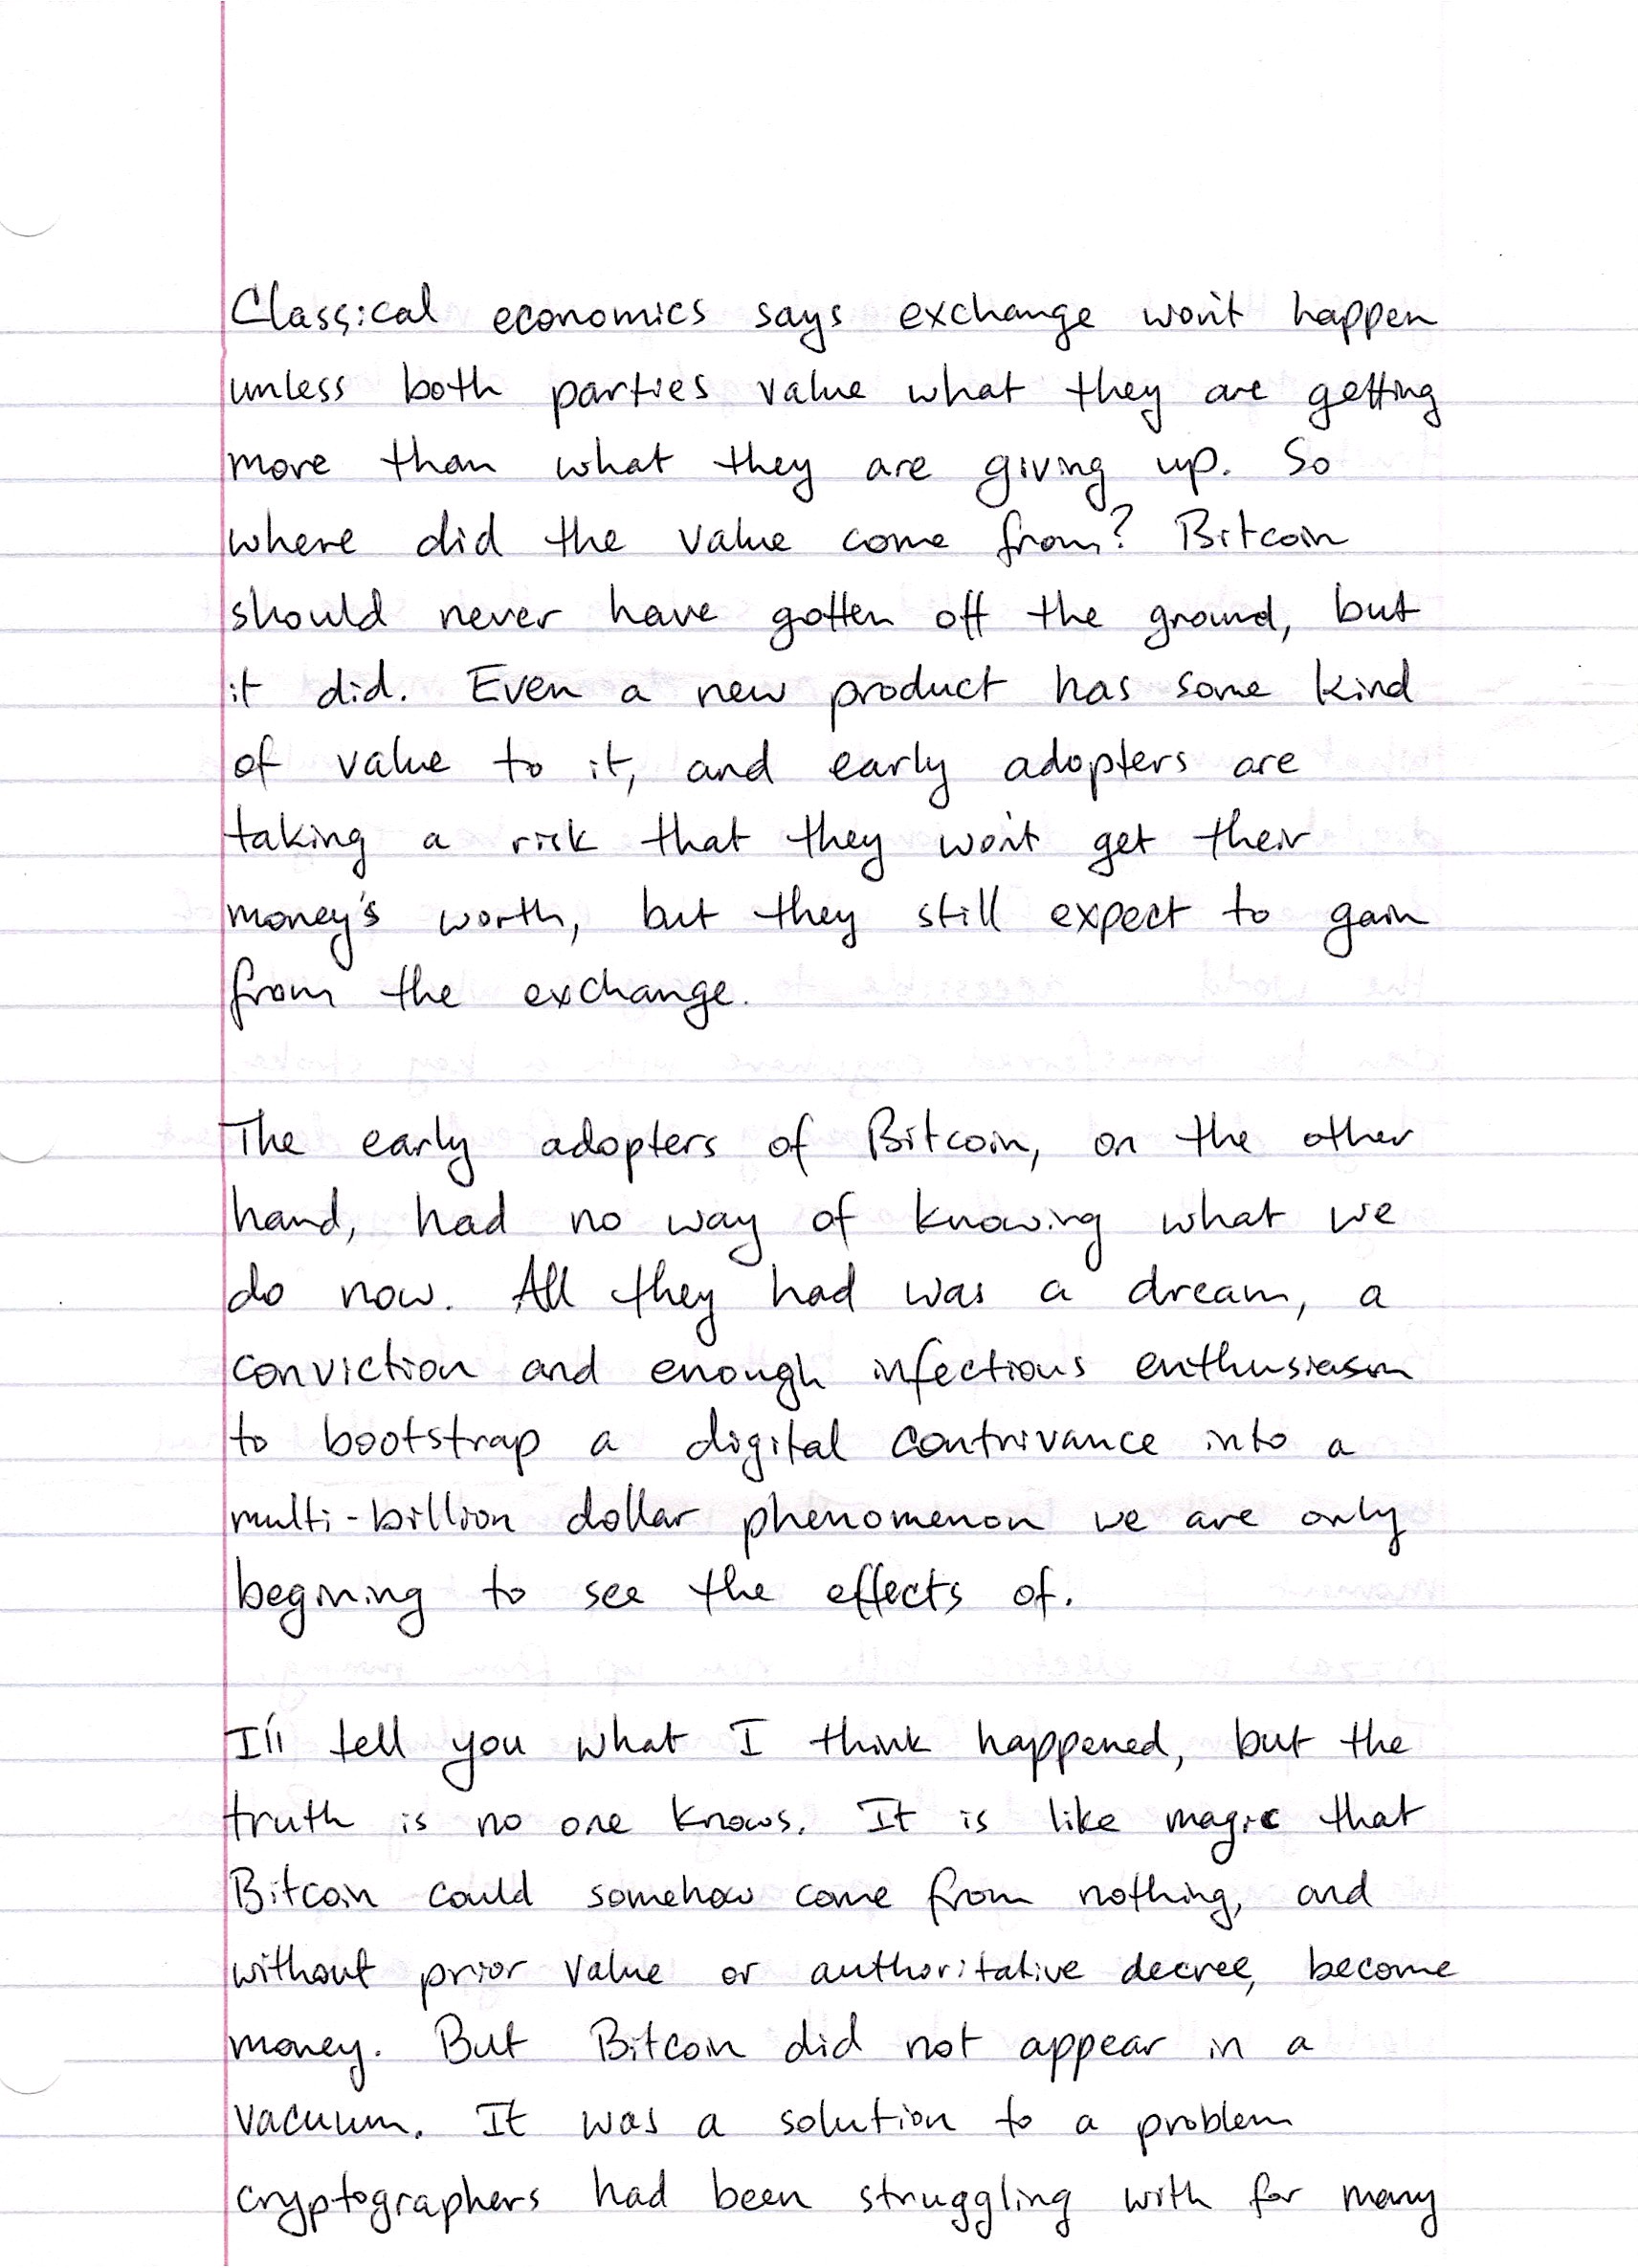 Classical economics says exchange won't happen
unless both parties value what they are getting
more than what they are giving up. So
where did the value come from? Bitcoin
should never have gotten off the ground, but
it did. Even a new product has some kind
of value to it, and early adopters are
taking a risk that they won't get their
money's worth, but they still expect to gain
from the exchange.
The early adopters of Bitcoin, on the other
hand, had no way of knowing what we
do now. All they had was a dream, a
conviction and enough infectious enthusiasm
to bootstrap a digital contrivance into a
multi-billion dollar phenomenon we are only
begining to see the effects of.
I'll tell you what I think happened, but the
truth is no one knows. It is like magic that
Bitcoin could somehow come from nothing, and
without prior value or authoritative decree, become
money. But Bitcoin did not appear in a
vacuum. It was a solution to a problem
cryptographers had been struggling with for many